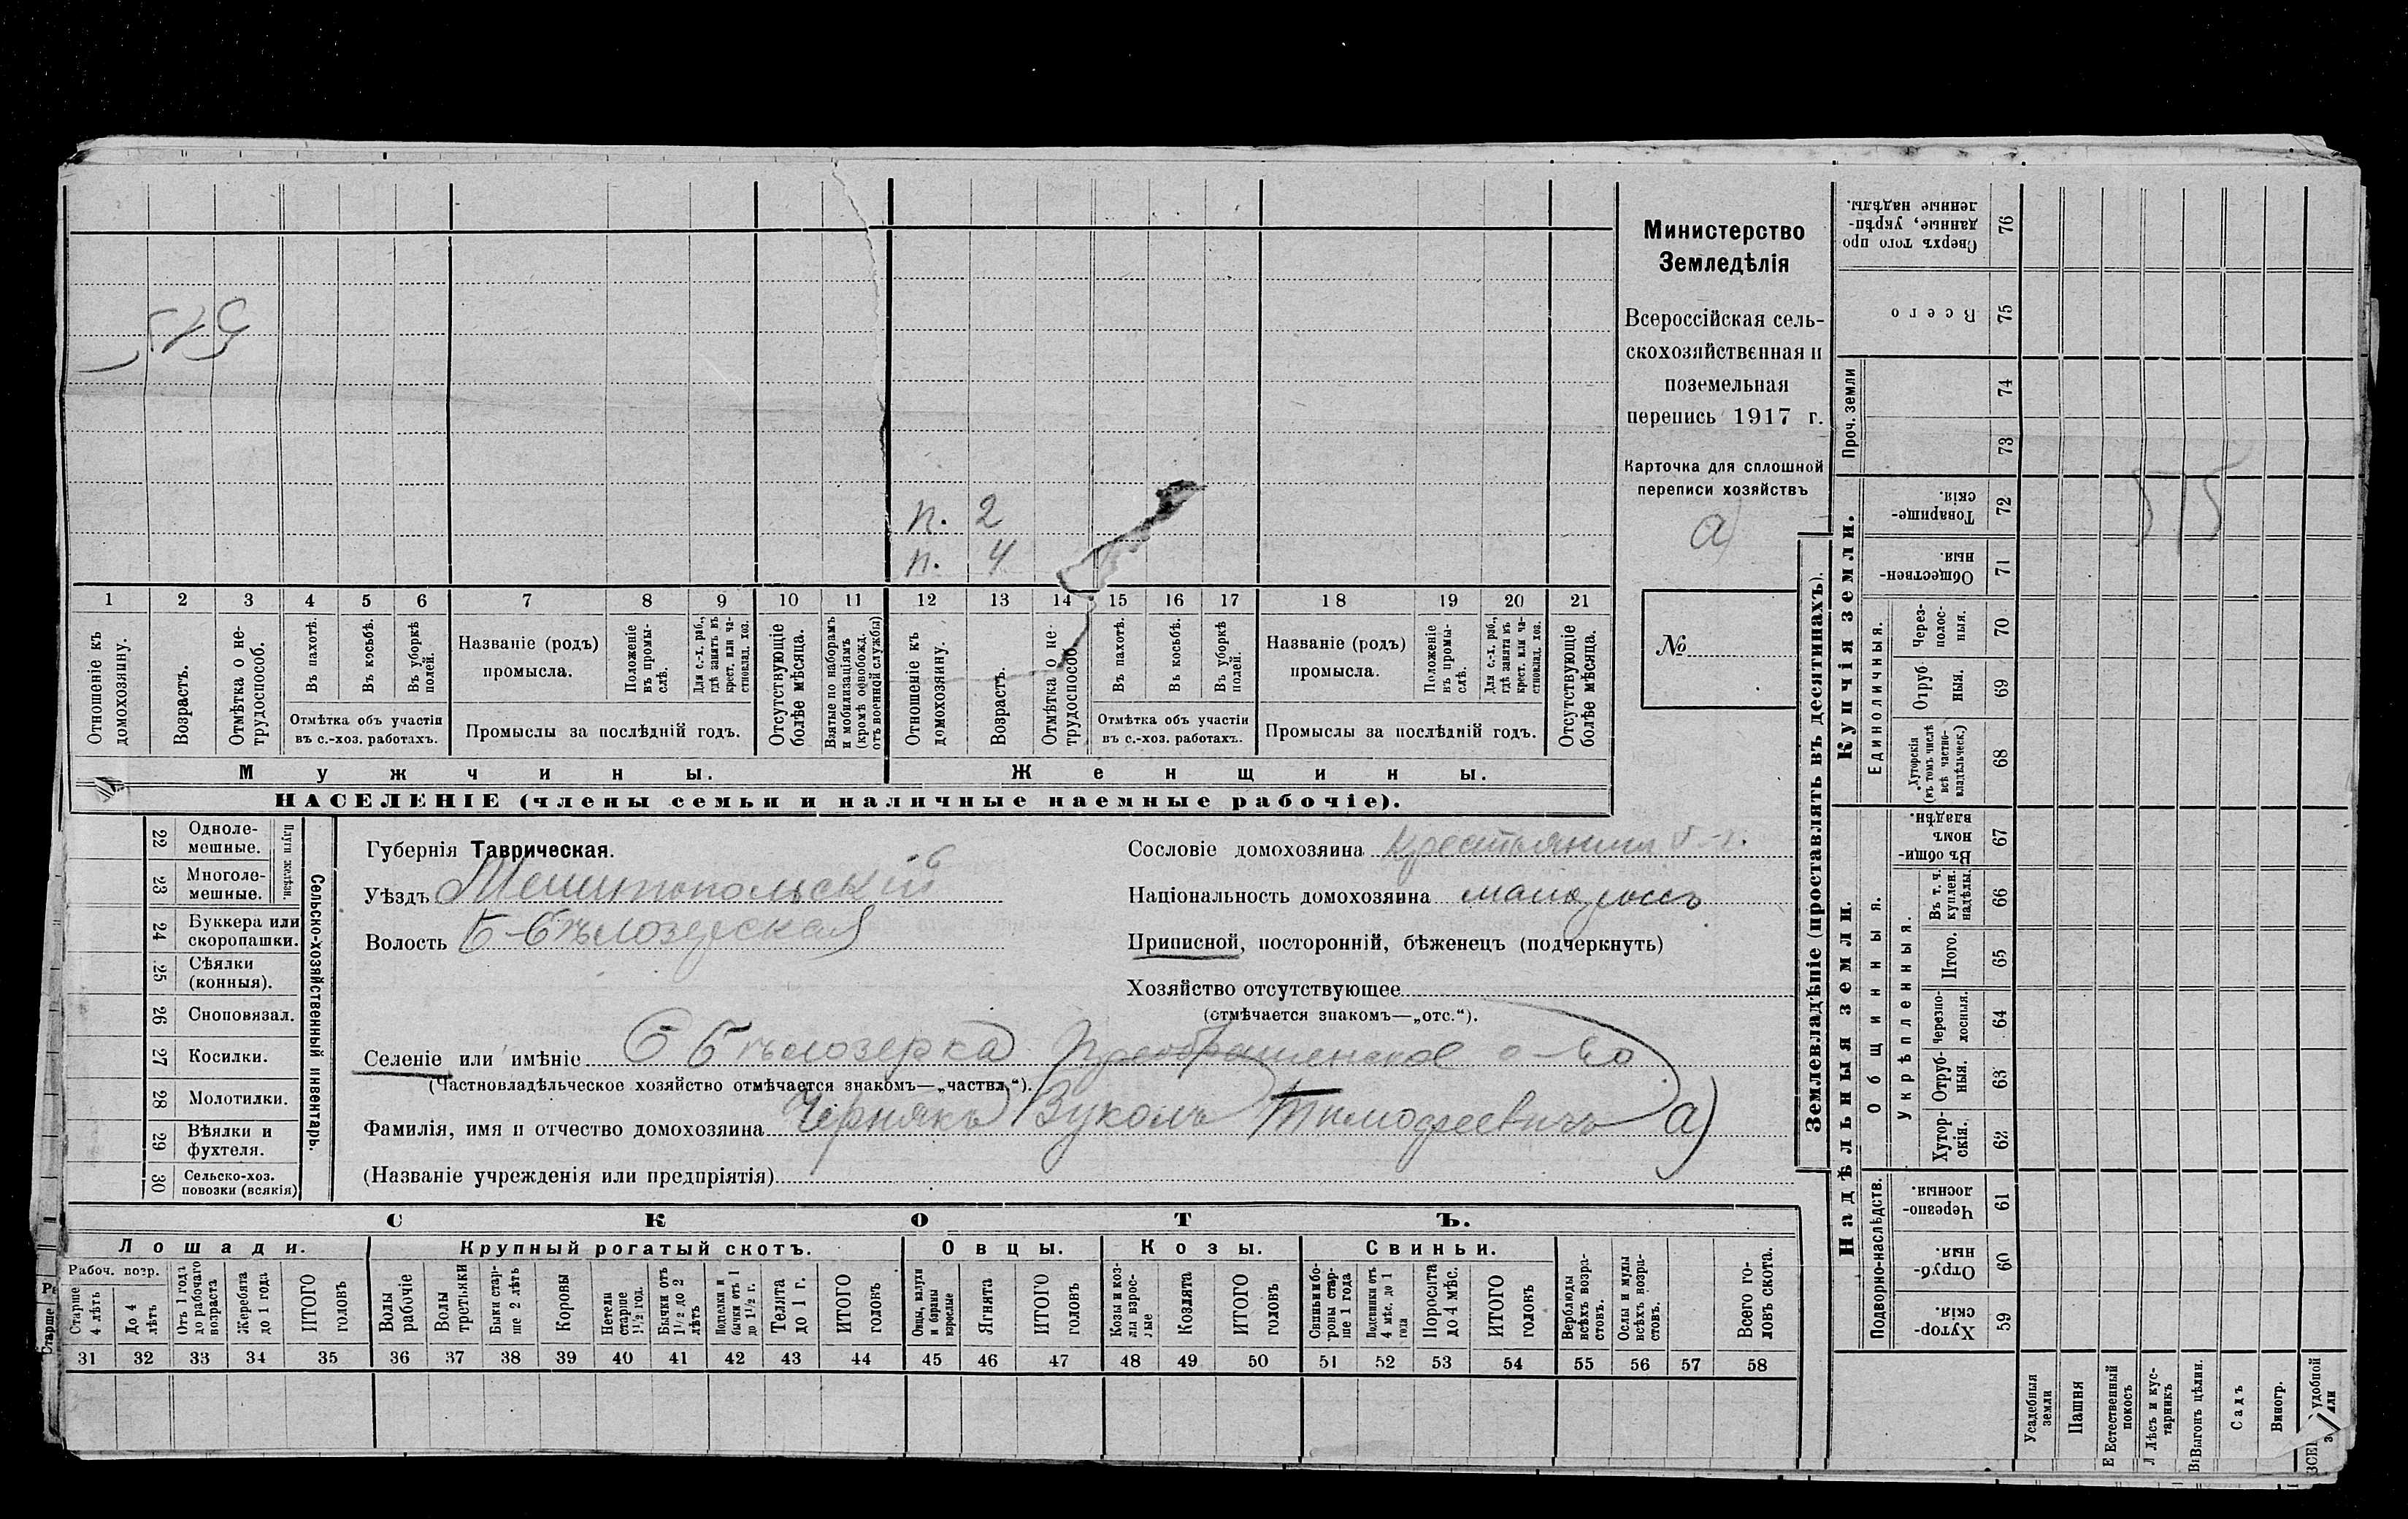 Министерство
Земледѣлія
Всероссійская сель-
скохозяйственная и
поземельная
перепись 1917 г.
Карточка для сплошной
переписи хозяйствъ
а)
№
575
п. 2
п. 4
1 2 3 4 5 6 7 8 9 10 11 12 13 14 15 16 17 18 19 20 21
Отношеніе къ домохозяину.
Возрастъ.
Отмѣтка о не-трудоспособ.
Въ пахотѣ.
Въ косьбѣ.
Въ уборкѣ полей.
Отмѣтка объ участіи
въ с.-хоз. работахъ.
Названіе (родъ)
промысла.
Положеніе въ промы-слѣ.
Для с.-х. раб., гдѣ занятъ въ крест. или ча-стновлад. хоз.
Промыслы за послѣдній годъ.
Отсутствующіе болѣе мѣсяца.
Взятые по наборамъ и мобилизаціямъ (кромѣ освобожд. отъ военной службы)
Отношеніе къ домохозяину.
Возрастъ.
Отмѣтка о не-трудоспособ.
Въ пахотѣ.
Въ косьбѣ.
Въ уборкѣ полей.
Отмѣтка объ участіи
въ с.-хоз. работахъ.
Названіе (родъ)
промысла.
Положеніе въ промы-слѣ.
Для с.-х. раб., гдѣ занята въ крест. или ча-стновлад. хоз.
Промыслы за послѣдній годъ.
Отсутствующіе болѣе мѣсяца.
Мужчины.
Женщины.
НАСЕЛЕНІЕ (члены семьи и наличные наемные рабочіе).
Сельско-хозяйственный инвентарь.
Плуги желѣзн.
22 Одноле-
мешные.
23 Многоле-
мешные.
24 Буккера или
скоропашки.
25 Сѣялки
(конныя).
26 Сноповязал.
27 Косилки.
28 Молотилки.
29 Вѣялки и
фухтеля.
30 Сельско-хоз.
повозки (всякія)
Губернія Таврическая.
Уѣздъ Мелитопольскій
Волость Б-Бѣлозерская
Сословіе домохозяина крестьянинъ
Національность домохозяина малороссъ
Приписной, посторонній, бѣженецъ (подчеркнуть)
Хозяйство отсутствующее
(отмѣчается знакомъ—„отс.“).
Селеніе или имѣніе Б Бѣлозерка Преображенское о-во
(Частновладѣльческое хозяйство отмѣчается знакомъ—„частвл.“).
Фамилія, имя и отчество домохозяина Чернякъ Вуколъ Тимофеевичъ а)
(Названіе учрежденія или предпріятія)
СКОТЪ.
Лошади.
Крупный рогатый скотъ.
Овцы.
Козы.
Свиньи.
Рабоч. возр.
Старше 4 лѣтъ
До 4 лѣтъ
Отъ 1 года до рабочаго возраста
Жеребята до 1 года
ИТОГО головъ
Волы рабочіе
Волы третьяки
Быки стар-ше 2 лѣтъ
Коровы
Нетели старше 1½ год.
Бычки отъ 1½ до 2 лѣтъ
Подтелки и бычки отъ 1 до 1½ г.
Телята до 1 г.
ИТОГО головъ
Овцы, валухи и бараны взрослые
Ягнята
ИТОГО головъ
Козы и коз-лы взрос-лые
Козлята
ИТОГО головъ
Свиньи и бо-ровы стар-ше 1 года
Подсвинки отъ 4 мѣс. до 1 года
Поросята до 4 мѣс.
ИТОГО головъ
Верблюды всѣхъ возра-стовъ.
Ослы и мулы всѣхъ возра-стовъ.
Всего го-ловъ скота.
31 32 33 34 35 36 37 38 39 40 41 42 43 44 45 46 47 48 49 50 51 52 53 54 55 56 57 58
Землевладѣніе (проставлять въ десятинахъ).
Надѣльныя земли.
Купчія земли.
Проч. земли
Подворно-наслѣдств.
Общинныя.
Укрѣпленныя.
Единоличныя.
Сверхъ того про
данные, укрѣп-
ленные надѣлы.
76
Всего
75
74
73
Товарище-
скія.
72
Обществен-
ныя.
71
Через-
полос-
ныя.
70
Отруб
ныя.
69
Хуторскія
(въ томъ числѣ
всѣ частно-
владѣльческ.)
68
Въ общи-
номъ
владѣн.
67
Въ т. ч.
куплен.
надѣлы.
66
Итого.
65
Черезпо-
лосныя.
64
Отруб-
ныя.
63
Хутор-
скія.
62
Черезпо-
лосныя.
61
Отруб-
ныя.
60
Хутор-
скія.
59
575
Усадебныя земли
Пашня
Естественный покосъ
Лѣсъ и кус-тарникъ
Выгонъ цѣлин.
Садъ
Виногр.
удобной